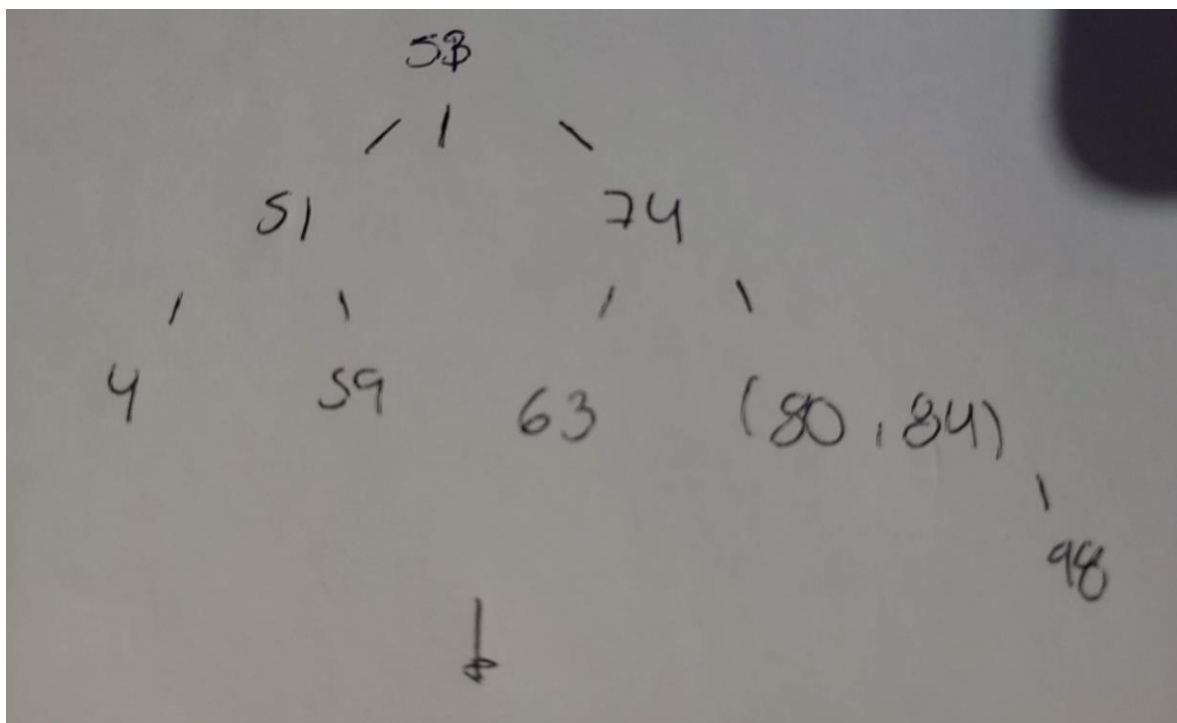 53
51 74
4 59 63 (80, 84)
98